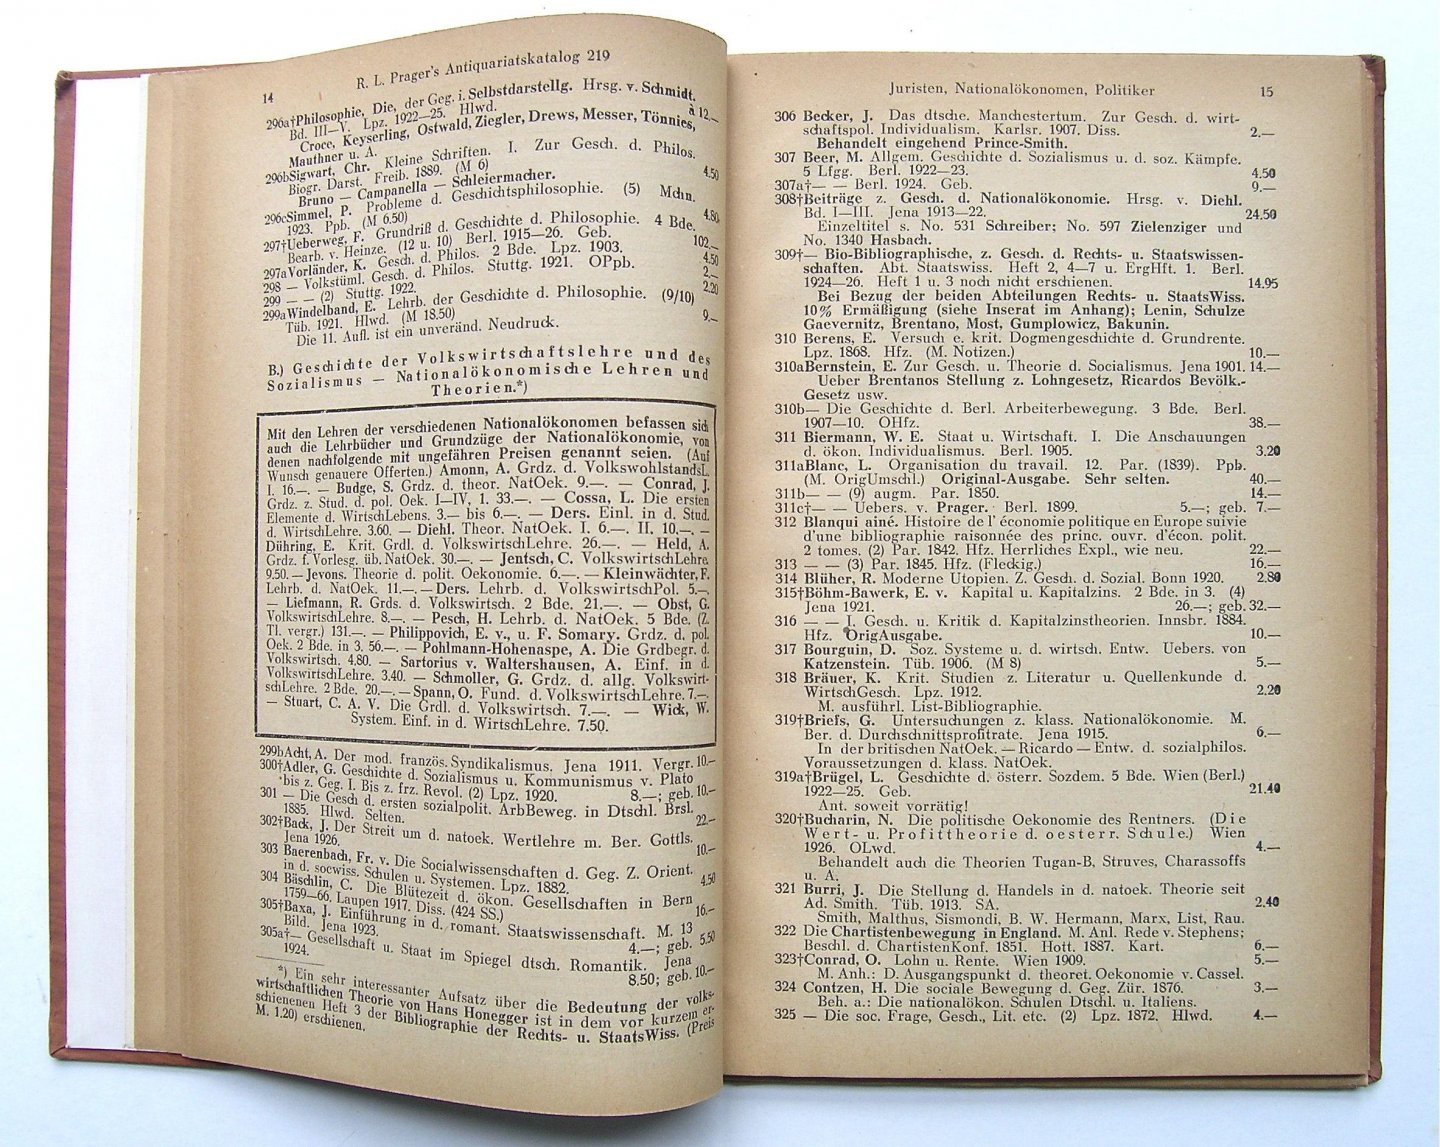 14
R. L. Prager's Antiquariatskatalog 219
296a†Philosophie, Die, der Geg. i. Selbstdarstellg. Hrsg. v. Schmidt.
Bd. III—V. Lpz. 1922—25. Hlwd. à 12.—
Croce, Keyserling, Ostwald, Ziegler, Drews, Messer, Tönnies,
Mauthner u. A.
296bSigwart, Chr. Kleine Schriften. I. Zur Gesch. d. Philos.
Biogr. Darst. Freib. 1889. (M 6) 4.50
Bruno — Campanella — Schleiermacher.
296cSimmel, P. Probleme d. Geschichtsphilosophie. (5) Mchn.
1923. Ppb. (M 6.50) 4.80
297†Ueberweg, F. Grundriß d. Geschichte d. Philosophie. 4 Bde.
Bearb. v. Heinze. (12 u. 10) Berl. 1915—26. Geb. 102.—
297aVorländer, K. Gesch. d. Philos. 2 Bde. Lpz. 1903. 4.50
298 — Volkstüml. Gesch. d. Philos. Stuttg. 1921. OPpb. 2.—
299 — — (2) Stuttg. 1922. 2.20
299aWindelband, E. Lehrb. der Geschichte d. Philosophie. (9/10)
Tüb. 1921. Hlwd. (M 18.50) 9.—
Die 11. Aufl. ist ein unveränd. Neudruck.
B.) Geschichte der Volkswirtschaftslehre und des
Sozialismus — Nationalökonomische Lehren und
Theorien.*)
Mit den Lehren der verschiedenen Nationalökonomen befassen sich
auch die Lehrbücher und Grundzüge der Nationalökonomie, von
denen nachfolgende mit ungefähren Preisen genannt seien. (Auf
Wunsch genauere Offerten.) Amonn, A. Grdz. d. VolkswohlstandsL.
I. 16.—. — Budge, S. Grdz. d. theor. NatOek. 9.—. — Conrad, J.
Grdz. z. Stud. d. pol. Oek. I—IV, 1. 33.—. — Cossa, L. Die ersten
Elemente d. WirtschLebens. 3.— bis 6.—. — Ders. Einl. in d. Stud.
d. WirtschLehre. 3.60. — Diehl. Theor. NatOek. I. 6.—. II. 10.—. —
Dühring, E. Krit. Grdl. d. VolkswirtschLehre. 26.—. — Held, A.
Grdz. f. Vorlesg. üb. NatOek. 30.—. — Jentsch, C. VolkswirtschLehre.
9.50.— Jevons. Theorie d. polit. Oekonomie. 6.—. — Kleinwächter, F.
Lehrb. d. NatOek. 11.—. — Ders. Lehrb. d. VolkswirtschPol. 5.—.
— Liefmann, R. Grds. d. Volkswirtsch. 2 Bde. 21.—. — Obst, G.
VolkswirtschLehre. 8.—. — Pesch, H. Lehrb. d. NatOek. 5 Bde. (Z.
Tl. vergr.) 131.—. — Philippovich, E. v., u. F. Somary. Grdz. d. pol.
Oek. 2 Bde. in 3. 56.—. — Pohlmann-Hohenaspe, A. Die Grdbegr. d.
Volkswirtsch. 4.80. — Sartorius v. Waltershausen, A. Einf. in d.
VolkswirtschLehre. 3.40. — Schmoller, G. Grdz. d. allg. Volkswirt-
schLehre. 2 Bde. 20.—. — Spann, O. Fund. d. VolkswirtschLehre. 7.—.
— Stuart, C. A. V. Die Grdl. d. Volkswirtsch. 7.—. — Wick, W.
System. Einf. in d. WirtschLehre. 7.50.
299bAcht, A. Der mod. französ. Syndikalismus. Jena 1911. Vergr. 10.—
300†Adler, G. Geschichte d. Sozialismus u. Kommunismus v. Plato
bis z. Geg. I. Bis z. frz. Revol. (2) Lpz. 1920. 8.—; geb. 10.—
301 — Die Gesch d. ersten sozialpolit. ArbBeweg. in Dtschl. Brsl.
1885. Hlwd. Selten. 22.—
302†Back, J. Der Streit um d. natoek. Wertlehre m. Ber. Gottls.
Jena 1926. 10.—
303 Baerenbach, Fr. v. Die Socialwissenschaften d. Geg. Z. Orient.
in d. socwiss. Schulen u. Systemen. Lpz. 1882. 4.50
304 Bäschlin, C. Die Blütezeit d. ökon. Gesellschaften in Bern
1759—66. Laupen 1917. Diss. (424 SS.) 16.—
305†Baxa, J. Einführung in d. romant. Staatswissenschaft. M. 13
Bild. Jena 1923. 4.—; geb. 5.50
305a†— Gesellschaft u. Staat im Spiegel dtsch. Romantik. Jena
1924. 8.50; geb. 10.—
*) Ein sehr interessanter Aufsatz über die Bedeutung der volks-
wirtschaftlichen Theorie von Hans Honegger ist in dem vor kurzem er-
schienenen Heft 3 der Bibliographie der Rechts- u. StaatsWiss. (Preis
M. 1,20) erschienen.
Juristen, Nationalökonomen, Politiker 15
306 Becker, J. Das dtsche. Manchestertum. Zur Gesch. d. wirt-
schaftspol. Individualism. Karlsr. 1907. Diss. 2.—
Behandelt eingehend Prince-Smith.
307 Beer, M. Allgem. Geschichte d. Sozialismus u. d. soz. Kämpfe.
5 Lfgg. Berl. 1922—23. 4.50
307a†— — Berl. 1924. Geb. 9.—
308†Beiträge z. Gesch. d. Nationalökonomie. Hrsg. v. Diehl.
Bd. I—III. Jena 1913—22. 24.50
Einzeltitel s. No. 531 Schreiber; No. 597 Zielenziger und
No. 1340 Hasbach.
309†— Bio-Bibliographische, z. Gesch. d. Rechts- u. Staatswissen-
schaften. Abt. Staatswiss. Heft 2, 4—7 u. ErgHft. 1. Berl.
1924—26. Heft 1 u. 3 noch nicht erschienen. 14.95
Bei Bezug der beiden Abteilungen Rechts- u. StaatsWiss.
10% Ermäßigung (siehe Inserat im Anhang); Lenin, Schulze
Gaevernitz, Brentano, Most, Gumplowicz, Bakunin.
310 Berens, E. Versuch e. krit. Dogmengeschichte d. Grundrente.
Lpz. 1868. Hfz. (M. Notizen.) 10.—
310aBernstein, E. Zur Gesch. u. Theorie d. Socialismus. Jena 1901. 14.—
Ueber Brentanos Stellung z. Lohngesetz, Ricardos Bevölk.-
Gesetz usw.
310b— Die Geschichte d. Berl. Arbeiterbewegung. 3 Bde. Berl.
1907—10. OHfz. 38.—
311 Biermann, W. E. Staat u. Wirtschaft. I. Die Anschauungen
d. ökon. Individualismus. Berl. 1905. 3.20
311aBlanc, L. Organisation du travail. 12. Par. (1839). Ppb.
(M. OrigUmschl.) Original-Ausgabe. Sehr selten. 40.—
311b— — (9) augm. Par. 1850. 14.—
311c†— — Uebers. v. Prager. Berl. 1899. 5.—; geb. 7.—
312 Blanqui ainé. Histoire de l' économie politique en Europe suivie
d'une bibliographie raisonnée des princ. ouvr. d'écon. polit.
2 tomes. (2) Par. 1842. Hfz. Herrliches Expl., wie neu. 22.—
313 — — (3) Par. 1845. Hfz. (Fleckig.) 16.—
314 Blüher, R. Moderne Utopien. Z. Gesch. d. Sozial. Bonn 1920. 2.80
315†Böhm-Bawerk, E. v. Kapital u. Kapitalzins. 2 Bde. in 3. (4)
Jena 1921. 26.—; geb. 32.—
316 — — I. Gesch. u. Kritik d. Kapitalzinstheorien. Innsbr. 1884.
Hfz. OrigAusgabe. 10.—
317 Bourguin, D. Soz. Systeme u. d. wirtsch. Entw. Uebers. von
Katzenstein. Tüb. 1906. (M 8) 5.—
318 Bräuer, K. Krit. Studien z. Literatur u. Quellenkunde d.
WirtschGesch. Lpz. 1912. 2.20
M. ausführl. List-Bibliographie.
319†Briefs, G. Untersuchungen z. klass. Nationalökonomie. M.
Ber. d. Durchschnittsprofitrate. Jena 1915. 6.—
In der britischen NatOek. — Ricardo — Entw. d. sozialphilos.
Voraussetzungen d. klass. NatOek.
319a†Brügel, L. Geschichte d. österr. Sozdem. 5 Bde. Wien (Berl.)
1922—25. Geb. 21.40
Ant. soweit vorrätig!
320†Bucharin, N. Die politische Oekonomie des Rentners. (Die
Wert- u. Profittheorie d. oesterr. Schule.) Wien
1926. OLwd. 4.—
Behandelt auch die Theorien Tugan-B, Struves, Charassoffs
u. A.
321 Burri, J. Die Stellung d. Handels in d. natoek. Theorie seit
Ad. Smith. Tüb. 1913. SA. 2.40
Smith, Malthus, Sismondi, B. W. Hermann, Marx, List, Rau.
322 Die Chartistenbewegung in England. M. Anl. Rede v. Stephens;
Beschl. d. ChartistenKonf. 1851. Hott. 1887. Kart. 6.—
323†Conrad, O. Lohn u. Rente. Wien 1909. 5.—
M. Anh.: D. Ausgangspunkt d. theoret. Oekonomie v. Cassel.
324 Contzen, H. Die sociale Bewegung d. Geg. Zür. 1876. 3.—
Beh. a.: Die nationalökon. Schulen Dtschl. u. Italiens.
325 — Die soc. Frage, Gesch., Lit. etc. (2) Lpz. 1872. Hlwd. 4.—